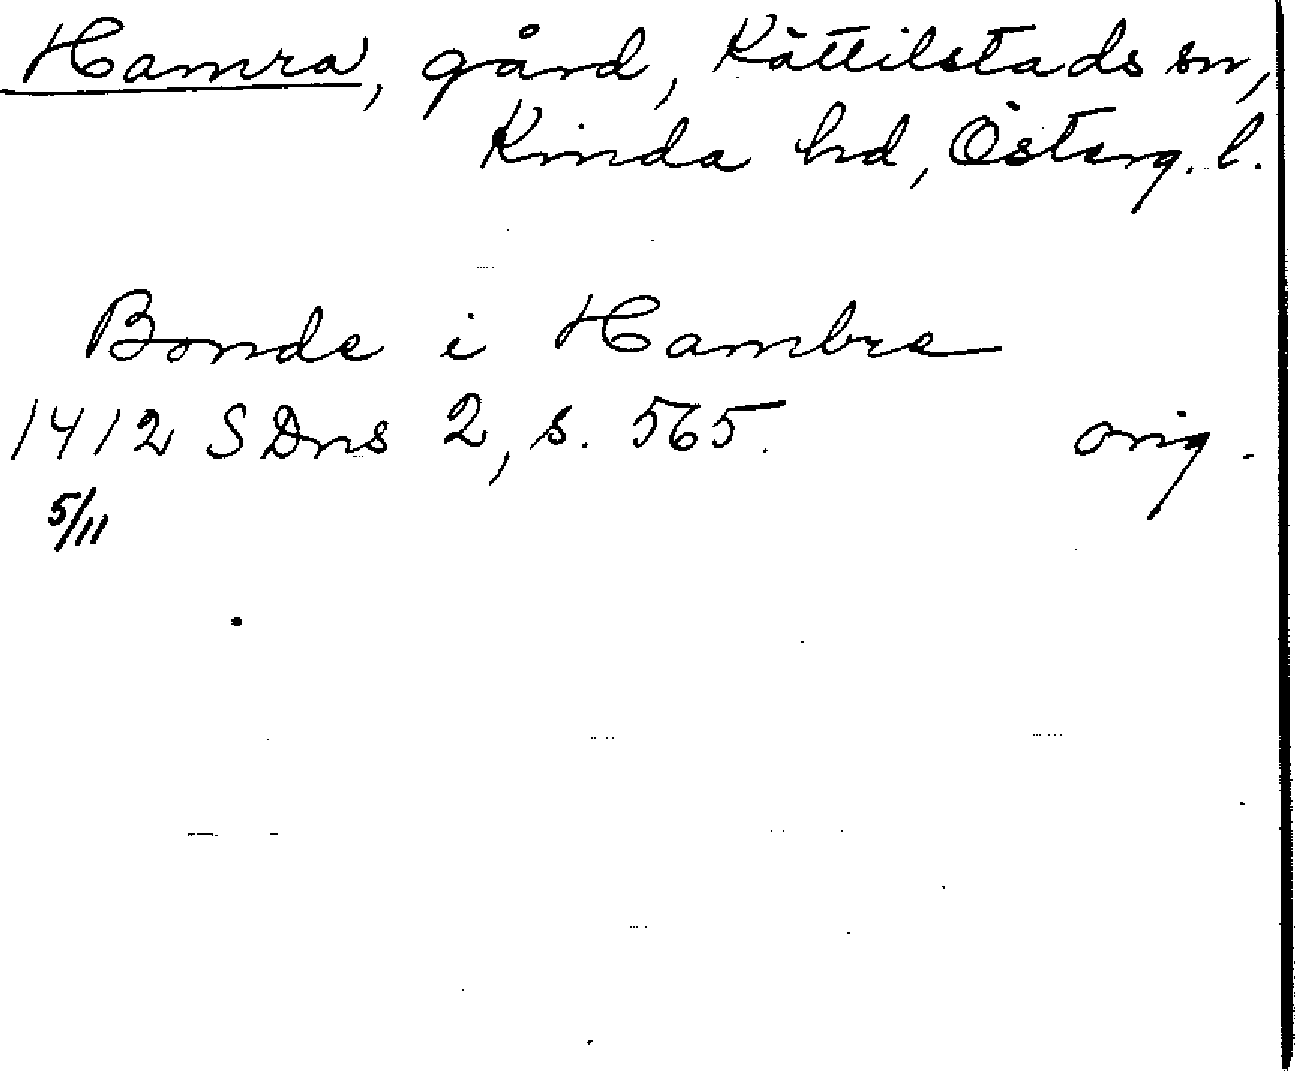 Hamra, gård, Kättilstads sn,
Kinda hd, Österg. l.
Bonde i Hambre
1412 SDns 2, s. 565. orig.
5/11